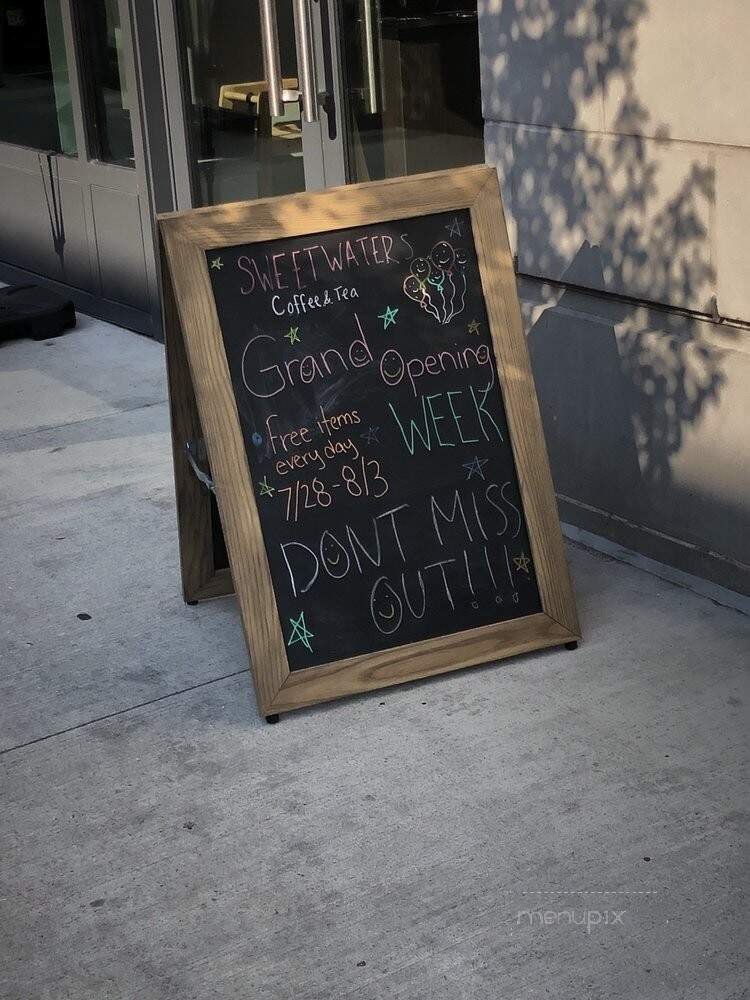 SWEETWATERS
Coffee & Tea
Grand Opening
WEEK
Free items
everyday
7/28-8/3
DONT MISS
OUT!!!
menupix